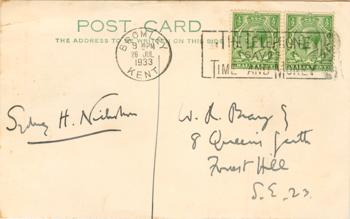 POST CARD
THE ADDRESS TO BE WRITTEN ON THIS SIDE
BROMLEY
9 PM
26 JUL
1933
KENT
THE TELEPHONE
SAVES
TIME AND MONEY
Sydney H. Nicholson
W. R. Bray Esq
8 Queens Garth
Forest Hill
S.E. 23.